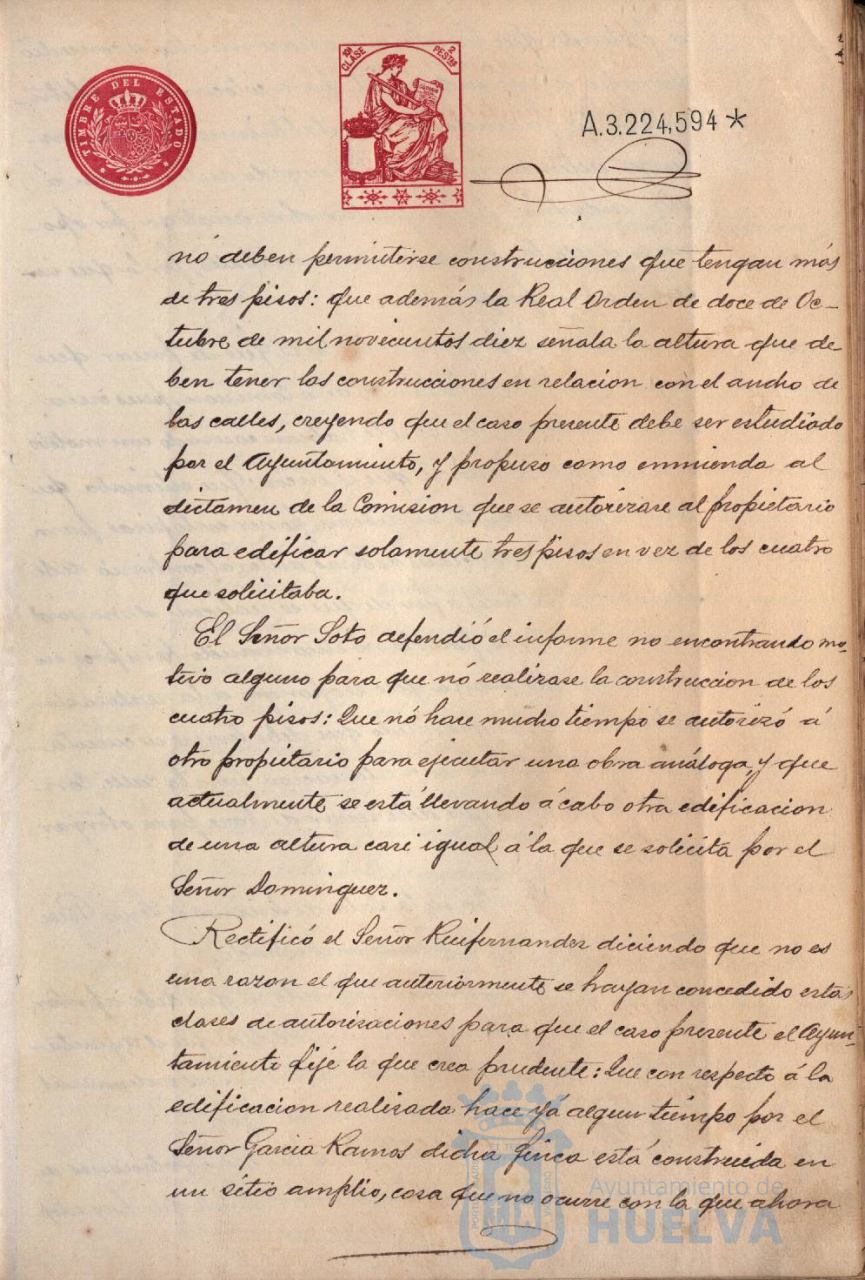 TIMBRE DEL ESTADO
10ª CLASE
2 PESTAS
A.3.224,594 *
nó deben permitirse construcciones que tengan más
de tres pisos: que además la Real Orden de doce de Oc-
tubre de mil novecientos diez señala la altura que de
ben tener las construcciones en relacion con el ancho de
las calles, creyendo que el caso presente debe ser estudiado
por el Ayuntamiento, y propuso como enmienda al
dictamen de la Comision que se autorizase al propietario
para edificar solamente tres pisos en vez de los cuatro
que solicitaba.
El Señor Soto defendió el informe no encontrando mo-
tivo alguno para que nó realizase la construccion de los
cuatro pisos: Que nó hace mucho tiempo se autorizó á
otro propietario para ejecutar una obra análoga, y que
actualmente se está llevando á cabo otra edificacion
de una altura casi igual á la que se solicita por el
Señor Dominguez.
Rectificó el Señor Ruifernandez diciendo que no es
una razon el que anteriormente se hayan concedido estas
clases de autorisaciones para que el caso presente el Ayun-
tamiento fije la que crea prudente: Que con respecto á la
edificacion realizada hace yá algun tiempo por el
Señor Garcia Ramos dicha finca está construida en
un sitio amplio, cosa que no ocurre con la que ahora
Ayuntamiento de
HUELVA